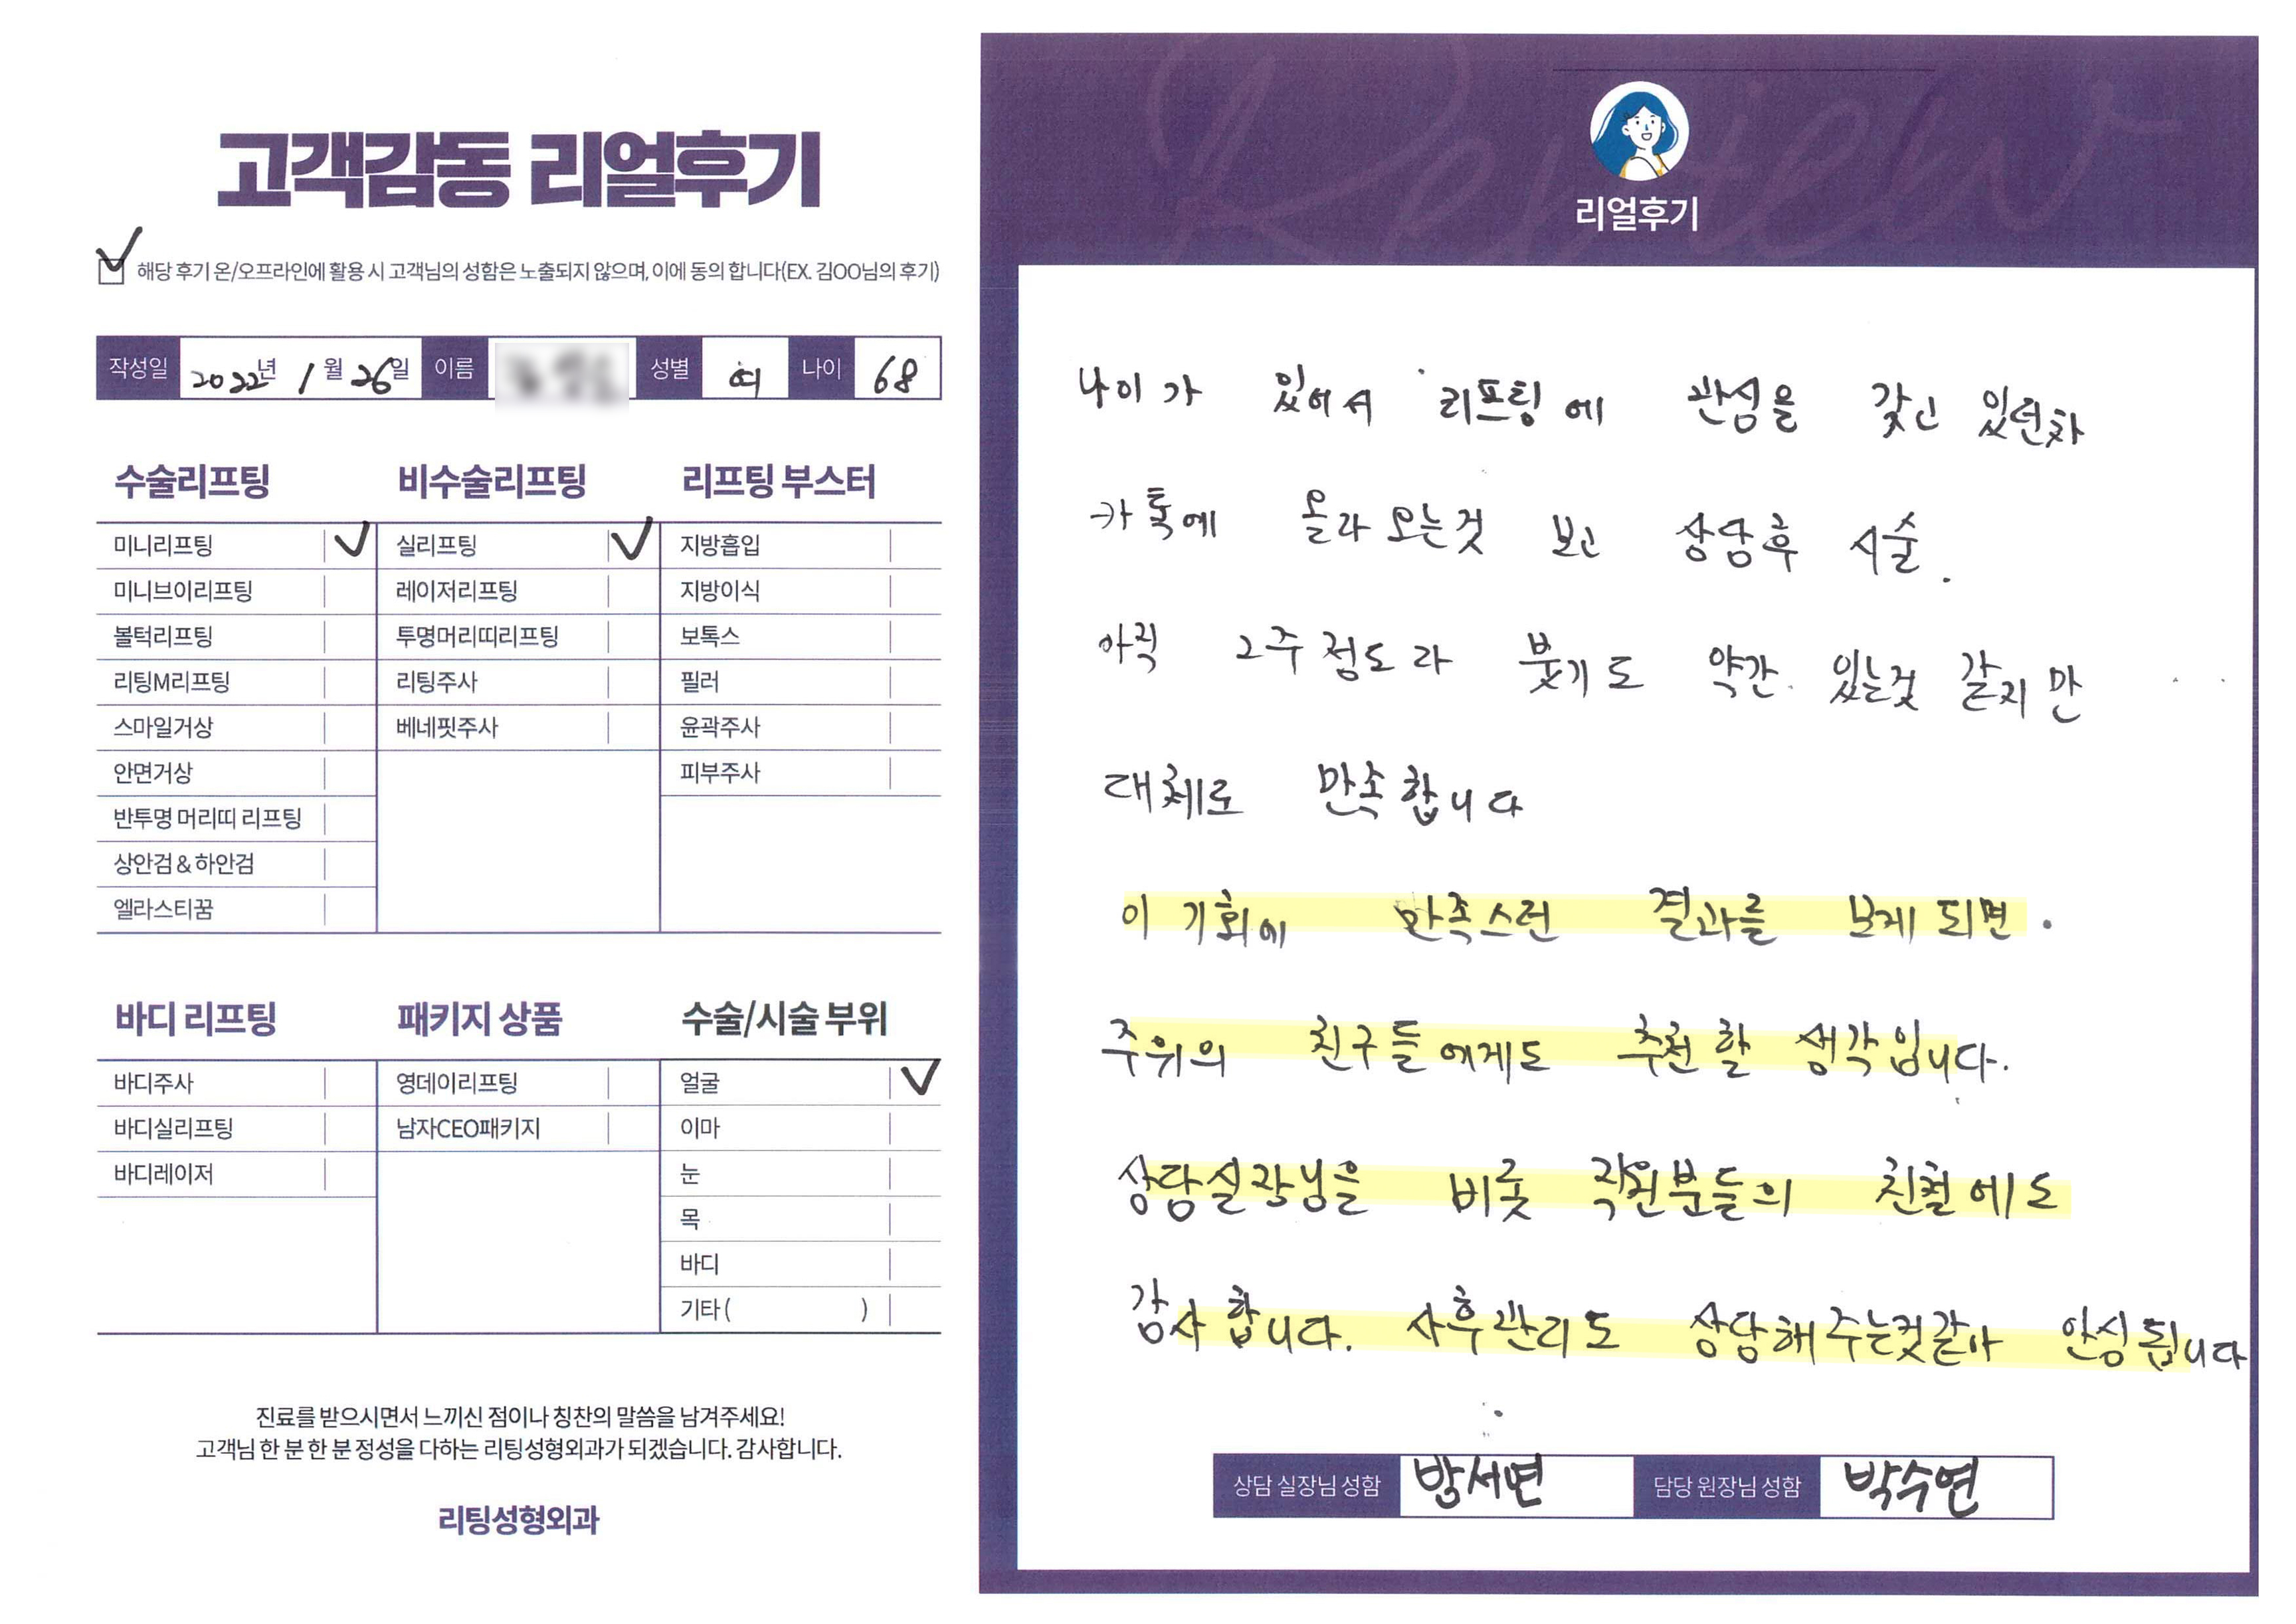 고객감동 리얼후기
해당 후기 온/오프라인에 활용 시 고객님의 성함은 노출되지 않으며, 이에 동의 합니다(EX. 김OO님의 후기)
작성일 2022년 1월 26일 이름 성별 여 나이 68
수술리프팅
미니리프팅
미니브이리프팅
볼턱리프팅
리팅M리프팅
스마일거상
안면거상
반투명 머리띠 리프팅
상안검 & 하안검
엘라스티꿈
비수술리프팅
실리프팅
레이저리프팅
투명머리띠리프팅
리팅주사
베네핏주사
리프팅 부스터
지방흡입
지방이식
보톡스
필러
윤곽주사
피부주사
바디 리프팅
바디주사
바디실리프팅
바디레이저
패키지 상품
영데이리프팅
남자CEO패키지
수술/시술 부위
얼굴
이마
눈
목
바디
기타 ( )
진료를 받으시면서 느끼신 점이나 칭찬의 말씀을 남겨주세요!
고객님 한 분 한 분 정성을 다하는 리팅성형외과가 되겠습니다. 감사합니다.
리팅성형외과
Review
리얼후기
나이가 있어서 리프팅에 관심을 갖고 있던차
카톡에 올라오는것 보고 상담후 시술.
아직 2주정도라 붓기도 약간 있는것 같지만
대체로 만족합니다
이 기회에 만족스런 결과를 보게되면.
주위의 친구들에게도 추천할 생각입니다.
상담실장님을 비롯 직원분들의 친절에도
감사합니다. 사후관리도 상담해주는것같아 안심됩니다
상담 실장님 성함 방서연 담당 원장님 성함 박수연